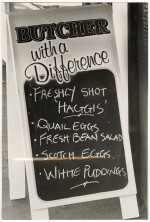 BUTCHER
with a
Difference
• FRESHLY SHOT
'HAGGIS'
• QUAIL EGGS
• FRESH BEAN SALAD
• SCOTCH EGGS
• WHITE PUDDINGS